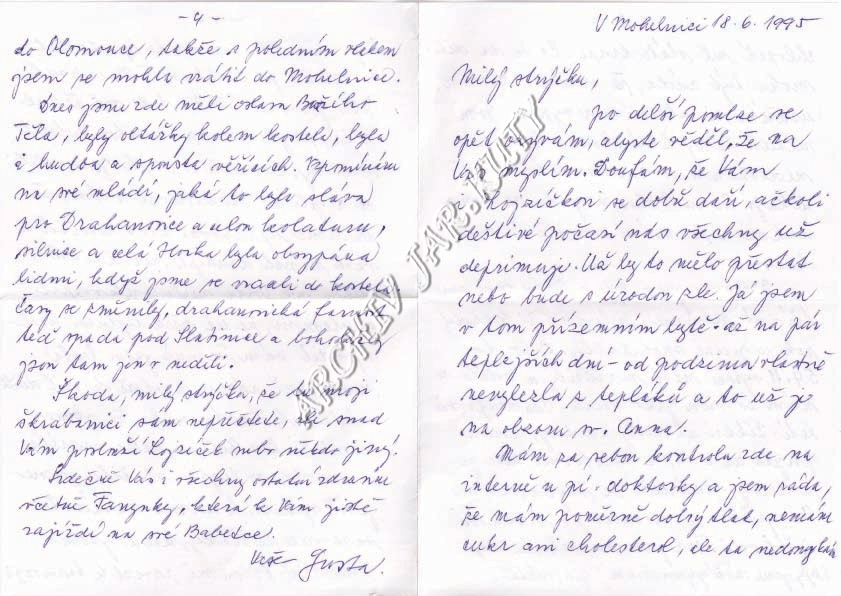 - 4 -
do Olomouce, takže s poledním vlakem
jsem se mohla vrátit do Mohelnice.
Dnes jsme zde měli oslavu Božího
Těla, byly oltářky kolem kostela, byla
i hudba a spousta věřících. Vzpomínám
na své mládí, jaká to byla sláva
pro Drahanovice a ulon kolaturu,
silnice a celá Horka byla obsypána
lidmi, když jsme se vraceli do kostela.
Časy se změnily, drahanovická farnost
teď spadá pod Slatinice a bohoslužby
jsou tam jen v neděli.
Škoda, milý strýčku, že tu moji
škrábanici sám nepřečtete, ale snad
Vám poslouží Lojzíček nebo někdo jiný.
Srdečně Vás i všechny ostatní zdravím
včetně Fanynky, která k Vám jistě
zajíždí na své Babetce.
Vaše Gusta.
V Mohelnici 18. 6. 1995
Milý strýčku,
po delší pomlce se
opět ozývám, abyste věděl, že na
Vás myslím. Doufám, že Vám
i Lojzíčkovi se dobře daří, ačkoli
deštivé počasí nás všechny už
deprimuje. Už by to mělo přestat
nebo bude s úrodou zle. Já jsem
v tom přízemním bytě - až na pár
teplejších dní - od podzima vlastně
nevylezla z tepláků a to už je
na obzoru sv. Anna.
Mám za sebou kontrolu zde na
interně u pí. doktorky a jsem ráda,
že mám poměrně dobrý tlak, nemám
cukr ani cholesterol, ale ta nedomykav
ARCHIV JAR. KUTÝ